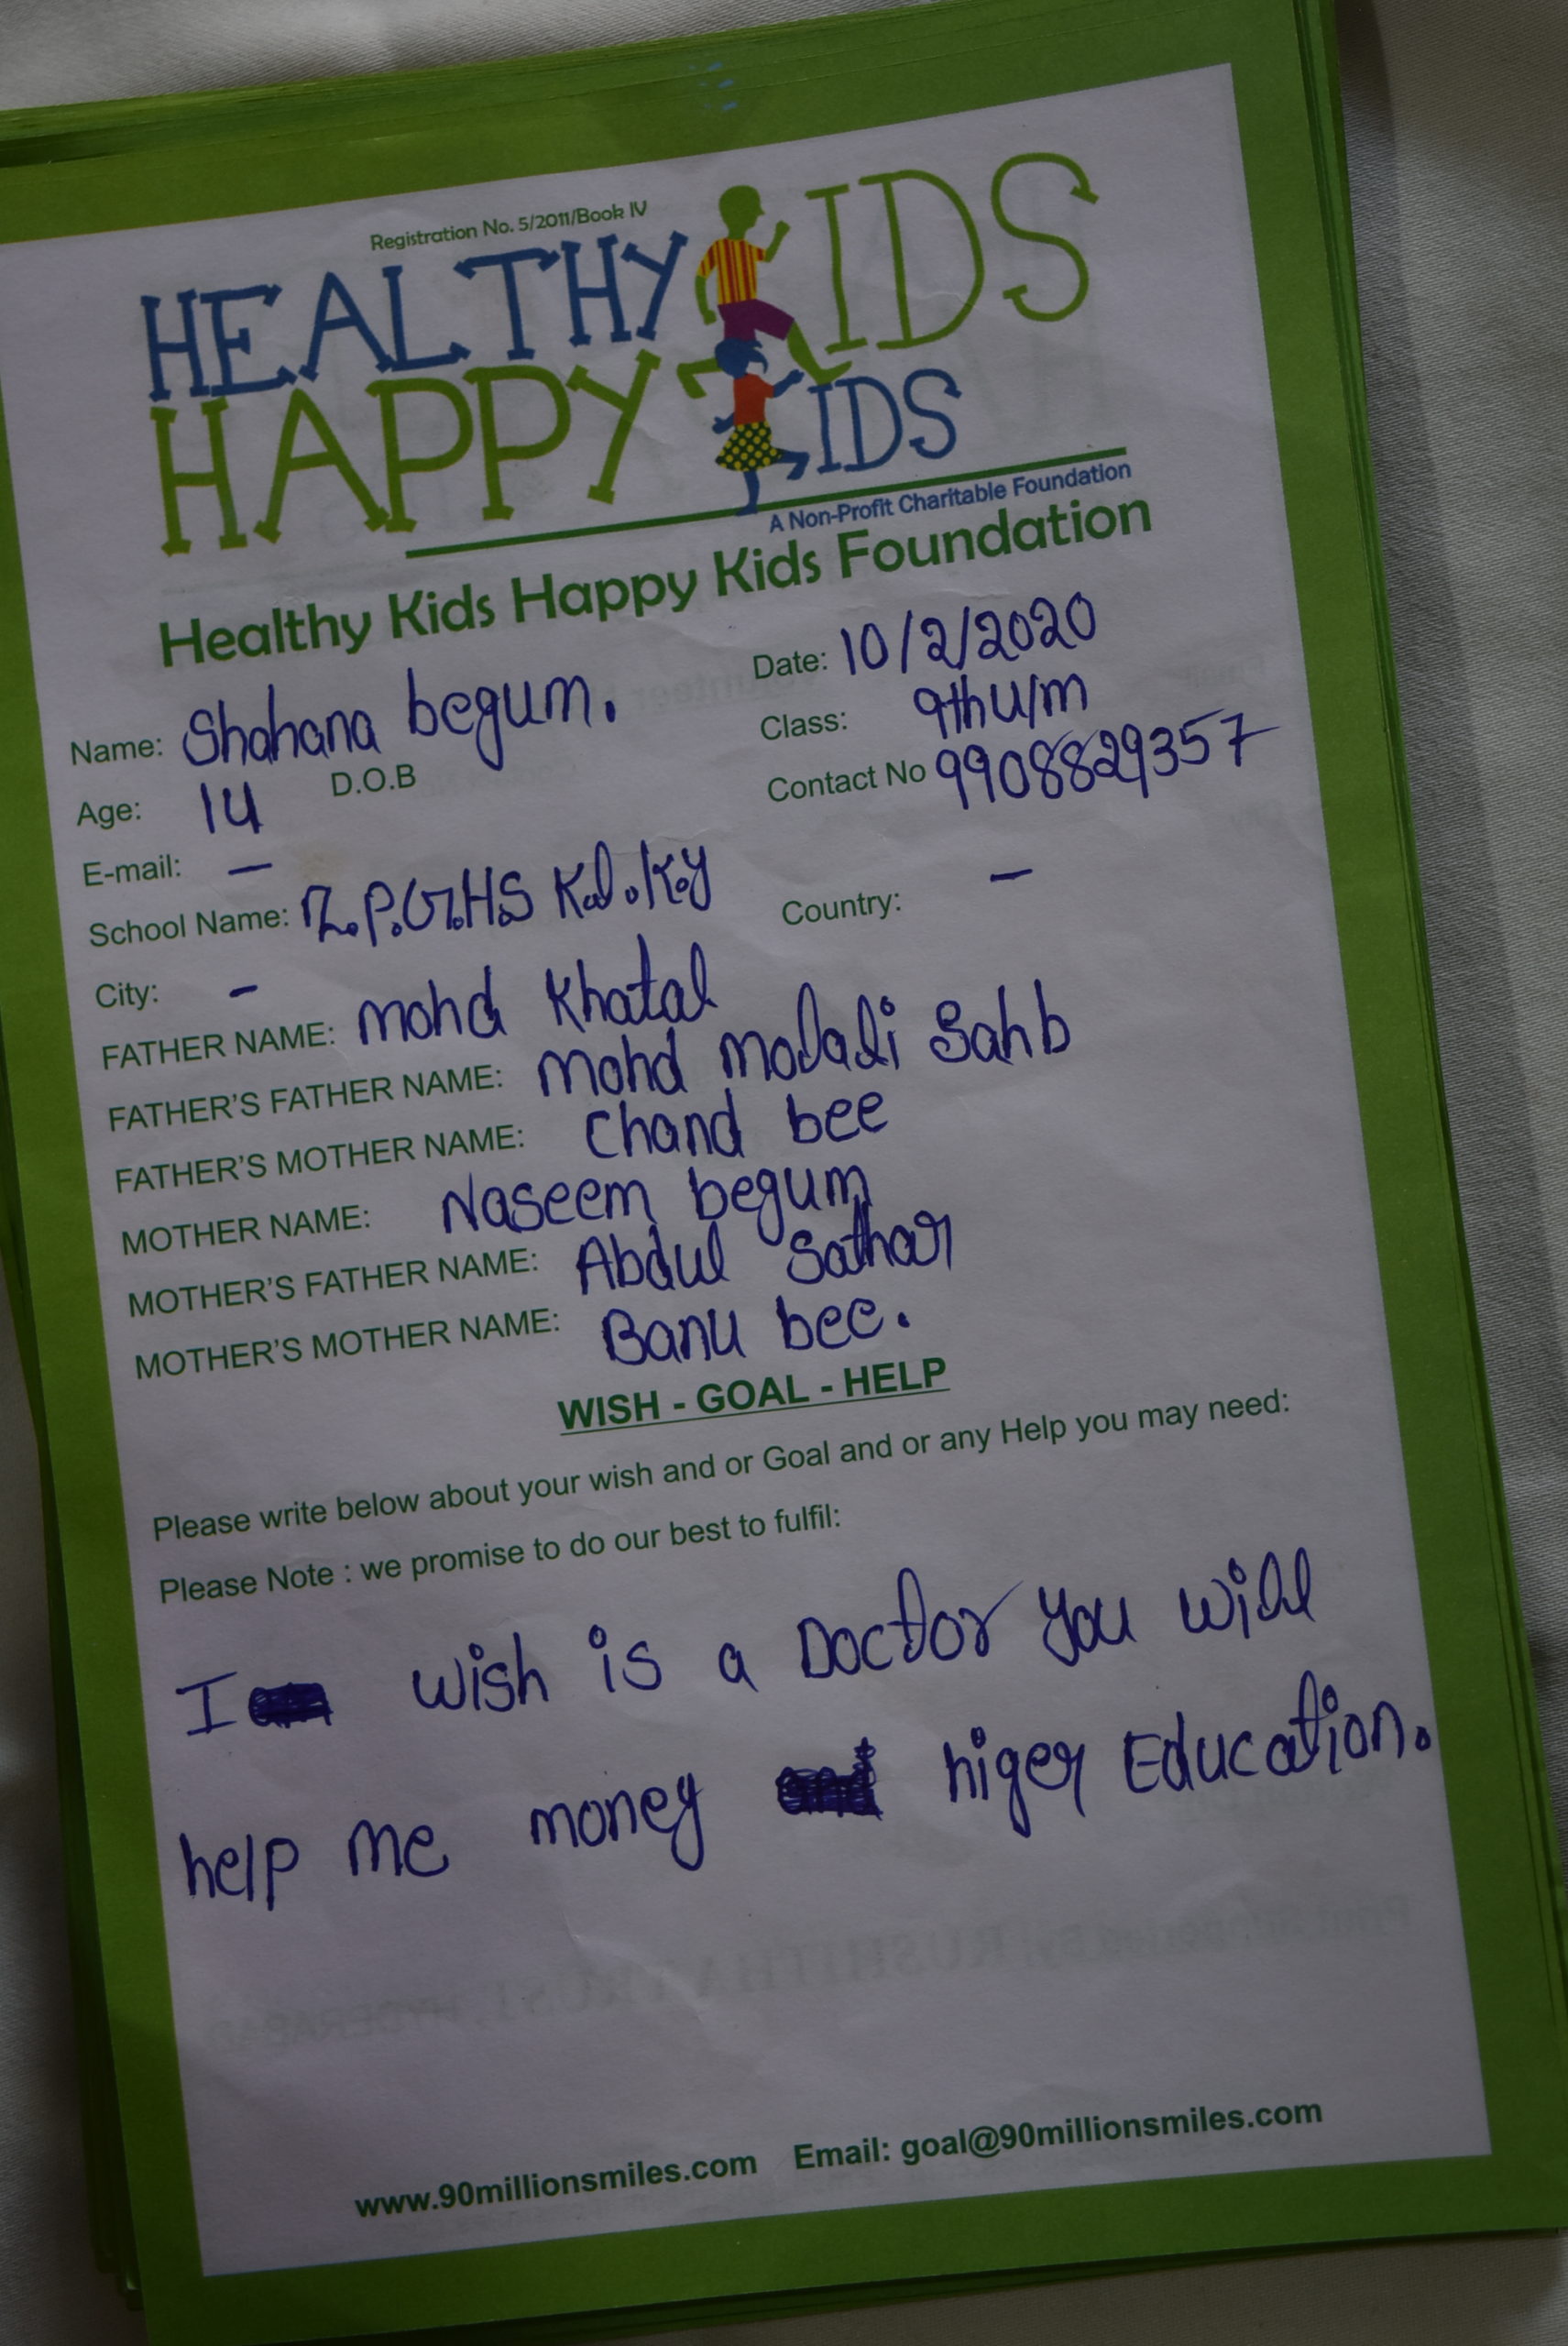 Registration No. 5/2011/Book IV
HEALTHY KIDS
HAPPY KIDS
A Non-Profit Charitable Foundation
Healthy Kids Happy Kids Foundation
Name: Shahana begum. Date: 10/2/2020
Class: 9th U/m
Age: 14 D.O.B Contact No 9908829357
E-mail: –
School Name: Z.P.G.H.S K.d.K.y Country: –
City: –
FATHER NAME: mohd Khatal
FATHER'S FATHER NAME: mohd modali Sahb
FATHER'S MOTHER NAME: Chand bee
MOTHER NAME: Naseem begum
MOTHER'S FATHER NAME: Abdul Sathar
MOTHER'S MOTHER NAME: Banu bee.
WISH - GOAL - HELP
Please write below about your wish and or Goal and or any Help you may need:
Please Note : we promise to do our best to fulfil:
I wish is a Doctor you will
help me money higer Education.
www.90millionsmiles.com Email: goal@90millionsmiles.com